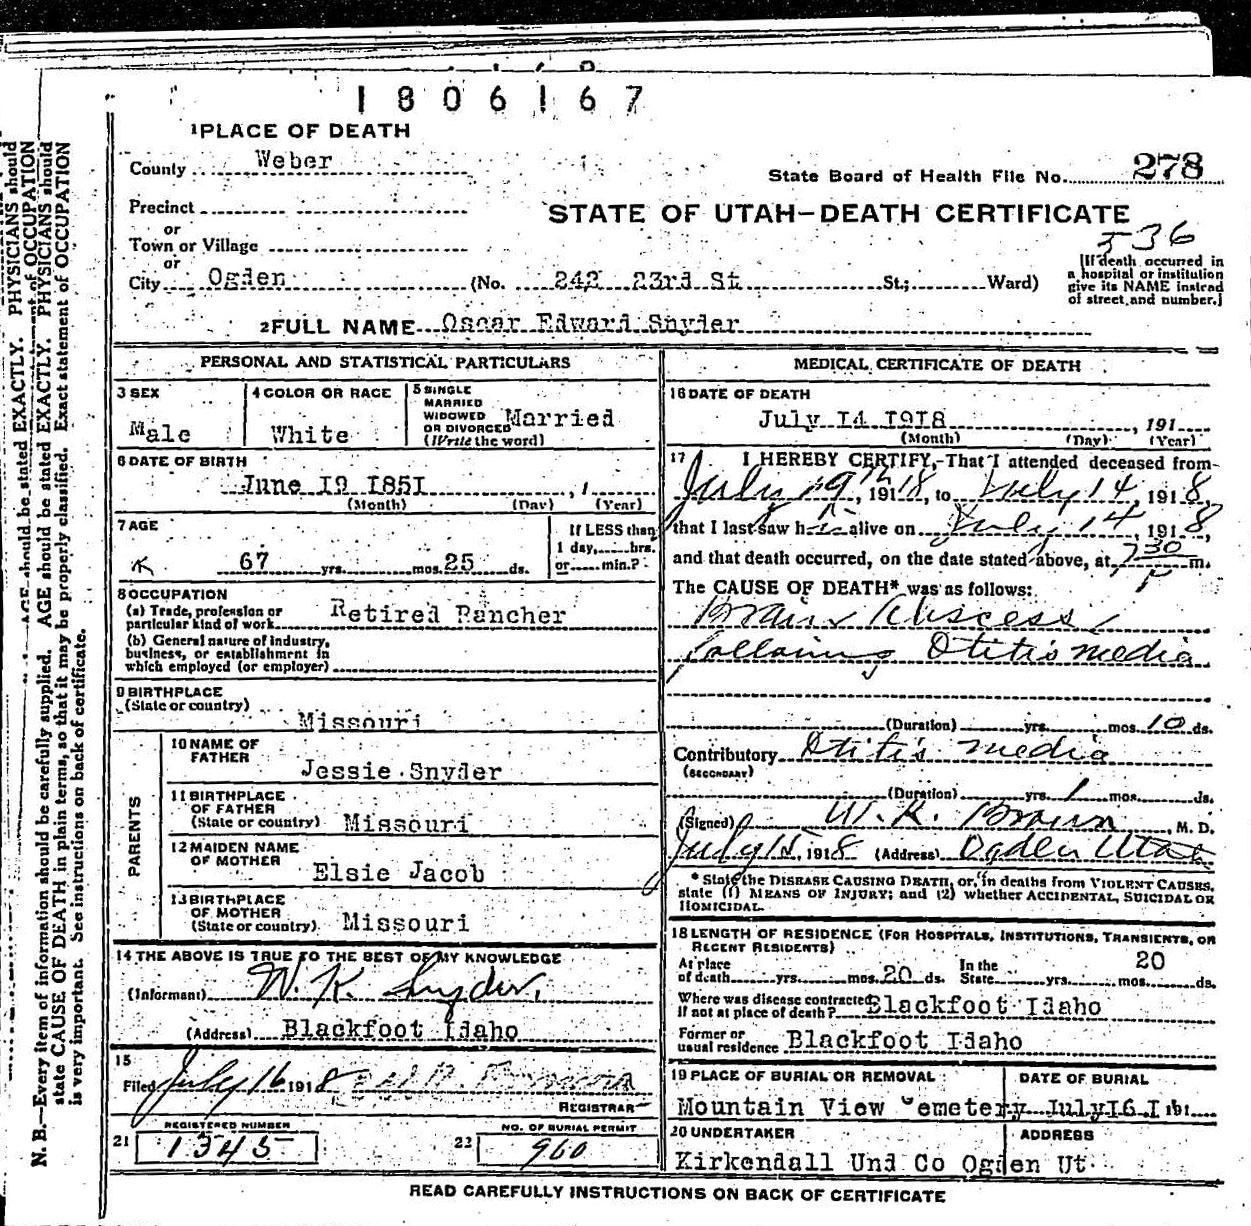 1806167
1 PLACE OF DEATH
County Weber
State Board of Health File No. 278
Precinct
or
Town or Village
or
City Ogden (No. 242 23rd St St.; Ward)
STATE OF UTAH—DEATH CERTIFICATE
536
[If death occurred in
a hospital or institution
give its NAME instead
of street and number.]
2 FULL NAME Oscar Edward Snyder
PERSONAL AND STATISTICAL PARTICULARS
3 SEX
Male
4 COLOR OR RACE
White
5 SINGLE
MARRIED
WIDOWED
OR DIVORCED
(Write the word)
Married
6 DATE OF BIRTH
June I9 I85I , 1
(Month) (Day) (Year)
7 AGE
67 yrs. mos. 25 ds.
If LESS than
1 day, hrs.
or min.?
8 OCCUPATION
(a) Trade, profession or
particular kind of work Retired Rancher
(b) General nature of industry,
business, or establishment in
which employed (or employer)
9 BIRTHPLACE
(State or country)
Missouri
PARENTS
10 NAME OF
FATHER
Jessie Snyder
11 BIRTHPLACE
OF FATHER
(State or country) Missouri
12 MAIDEN NAME
OF MOTHER
Elsie Jacob
13 BIRTHPLACE
OF MOTHER
(State or country) Missouri
14 THE ABOVE IS TRUE TO THE BEST OF MY KNOWLEDGE
(Informant) W. K. Snyder,
(Address) Blackfoot Idaho
15
Filed July 16 1918
REGISTRAR
REGISTERED NUMBER
21 1345
NO. OF BURIAL PERMIT
22 960
MEDICAL CERTIFICATE OF DEATH
16 DATE OF DEATH
July I4 I9I8 , 191
(Month) (Day) (Year)
17 I HEREBY CERTIFY,—That I attended deceased from
July 9th, 1918, to July 14, 1918,
that I last saw h alive on July 14, 1918,
and that death occurred, on the date stated above, at 7 30 P m.
The CAUSE OF DEATH* was as follows:
Brain Abscess
following Otitis media
(Duration) yrs. mos. 10 ds.
Contributory Otitis media
(SECONDARY)
(Duration) yrs. 1 mos. ds.
(Signed) W. K. Brown, M. D.
July 15, 1918 (Address) Ogden Utah
* State the DISEASE CAUSING DEATH, or, in deaths from VIOLENT CAUSES,
state (1) MEANS OF INJURY; and (2) whether ACCIDENTAL, SUICIDAL OR
HOMICIDAL.
18 LENGTH OF RESIDENCE (FOR HOSPITALS, INSTITUTIONS, TRANSIENTS, OR
RECENT RESIDENTS)
At place
of death yrs. mos. 20 ds. In the
State yrs. mos. 20 ds.
Where was disease contracted
if not at place of death? Blackfoot Idaho
Former or
usual residence Blackfoot Idaho
19 PLACE OF BURIAL OR REMOVAL
Mountain View Cemetery
DATE OF BURIAL
July I6 I 191
20 UNDERTAKER
Kirkendall Und Co Ogden Ut
ADDRESS
READ CAREFULLY INSTRUCTIONS ON BACK OF CERTIFICATE
N. B.—Every item of information should be carefully supplied. AGE should be stated EXACTLY. PHYSICIANS should
state CAUSE OF DEATH in plain terms, so that it may be properly classified. Exact statement of OCCUPATION
is very important. See instructions on back of certificate.